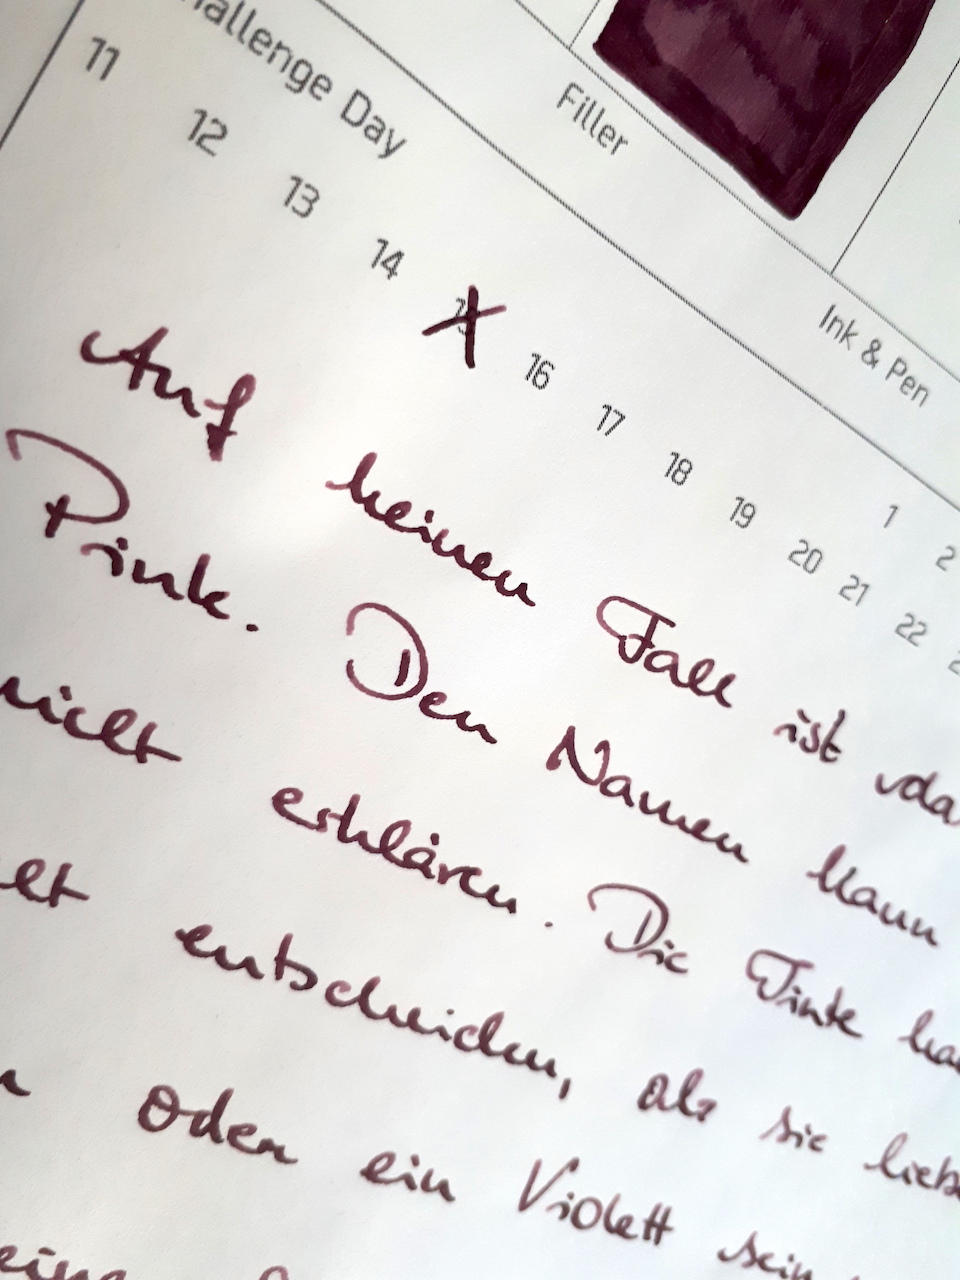 Challenge Day
Filler
Ink & Pen
11 12 13 14 15 16 17 18 19 20 21 22
1 2
Auf keinen Fall ist da
Pink. Den Namen kann
nicht erklären. Die Tinte
entscheiden, als sie liebe
oder ein Violett sein